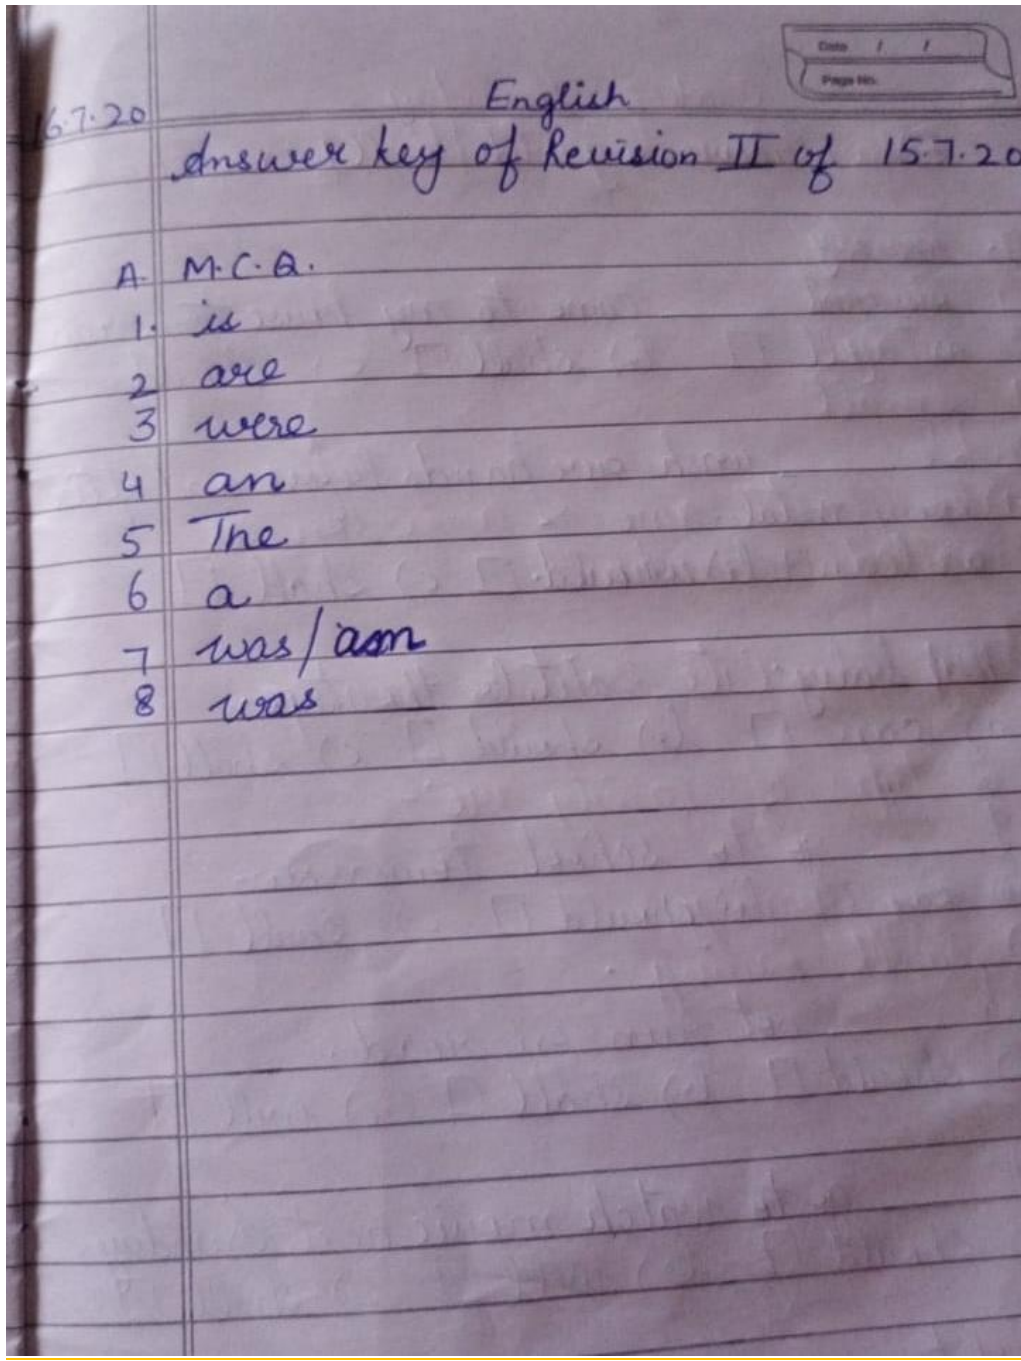 Date / /
Page No.
English
16.7.20
Answer key of Revision II of 15.7.20
A. M.C.Q.
1. is
2 are
3 were
4 an
5 The
6 a
7 was/am
8 was